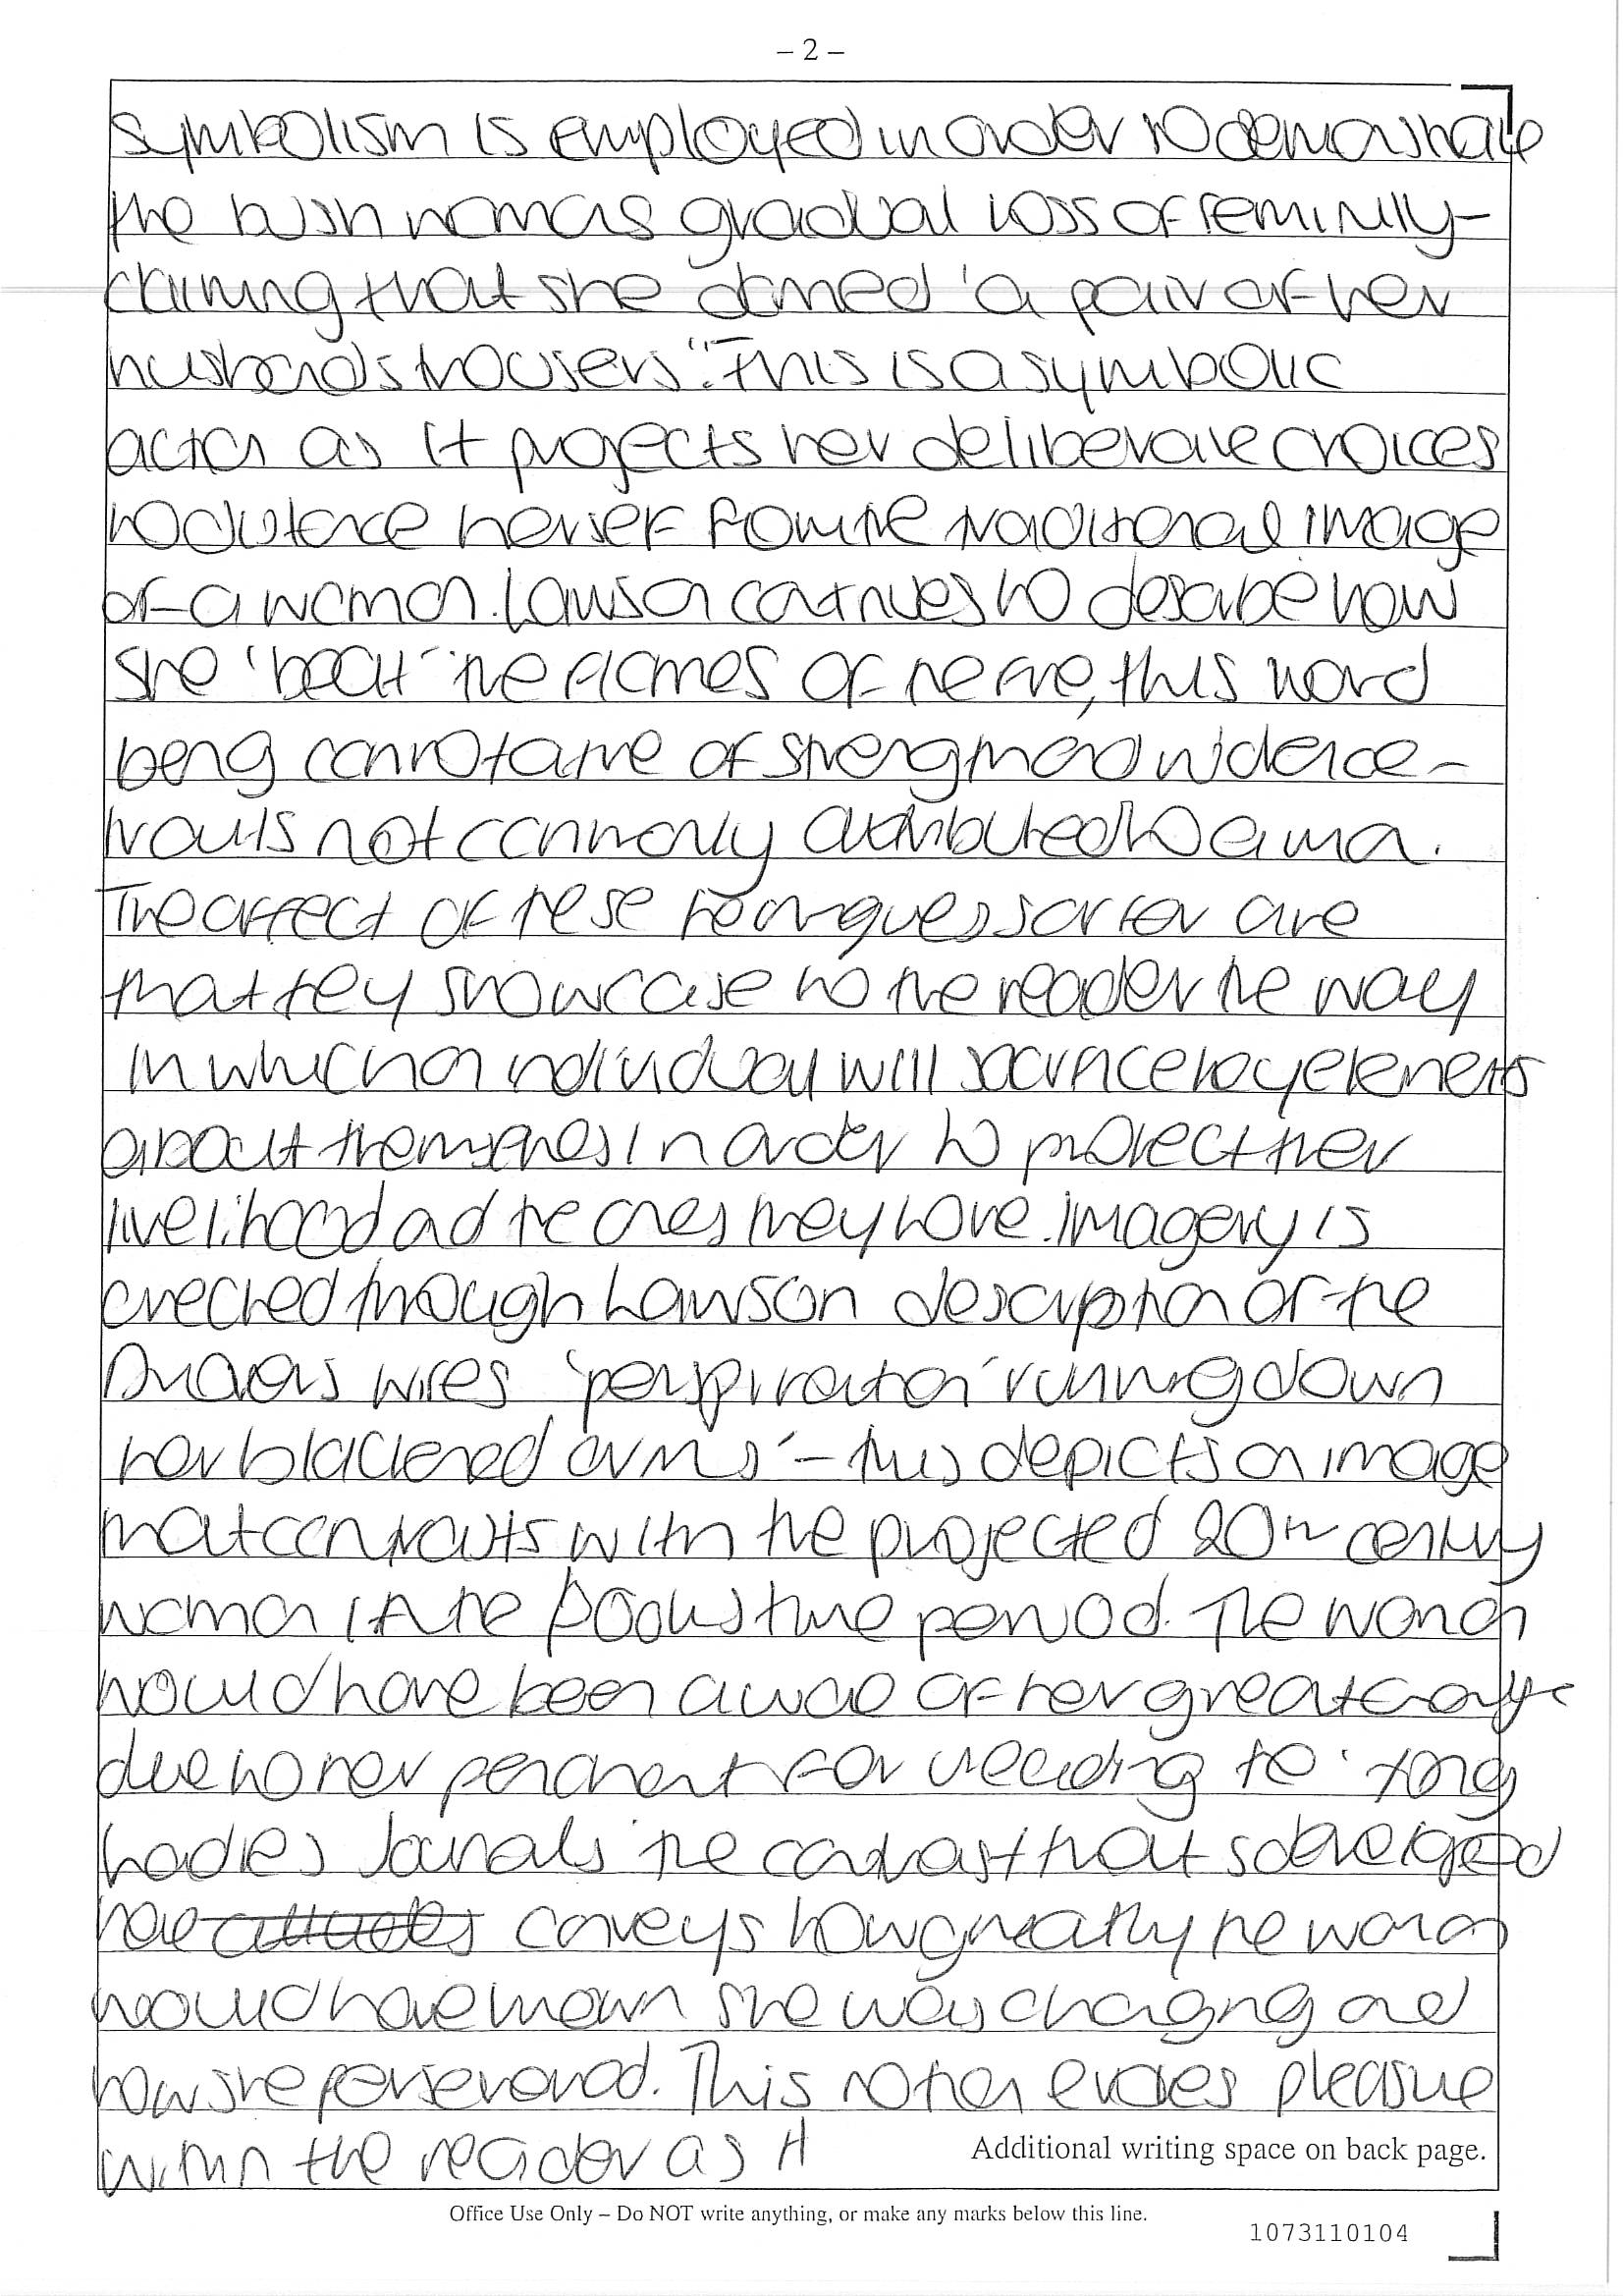 – 2 –
Symbolism is employed in order to demonstrate
the bush womans gradual loss of feminity–
claiming that she donned 'a pair of her
husbands trousers". This is a symbolic
action as it projects her deliberate choices
to distance herself from the traditional image
of a woman. Lawson continues to describe how
she 'beat' the flames of the fire, this word
being connotative of strength and violence –
traits not commonly attributed to a woman.
The affect of these techniques so far are
that they showcase to the reader the way
in which an individual will sacrifice key elements
about themselves in order to protect their
livelihood and the ones they love. Imagery is
created through Lawson description of the
Drovers wifes 'perspiration running down
her blackened arms' – this depicts an image
that contrasts with the projected 20th century
woman in the books time period. The woman
would have been aware of her great change
due to her penchant for reading the 'Young
Ladies Journals' the contrast that
here conveys how greatly the woman
would have known she was changing and
how she persevered. This notion evokes pleasure
within the reader as it
Additional writing space on back page.
Office Use Only – Do NOT write anything, or make any marks below this line.
1073110104